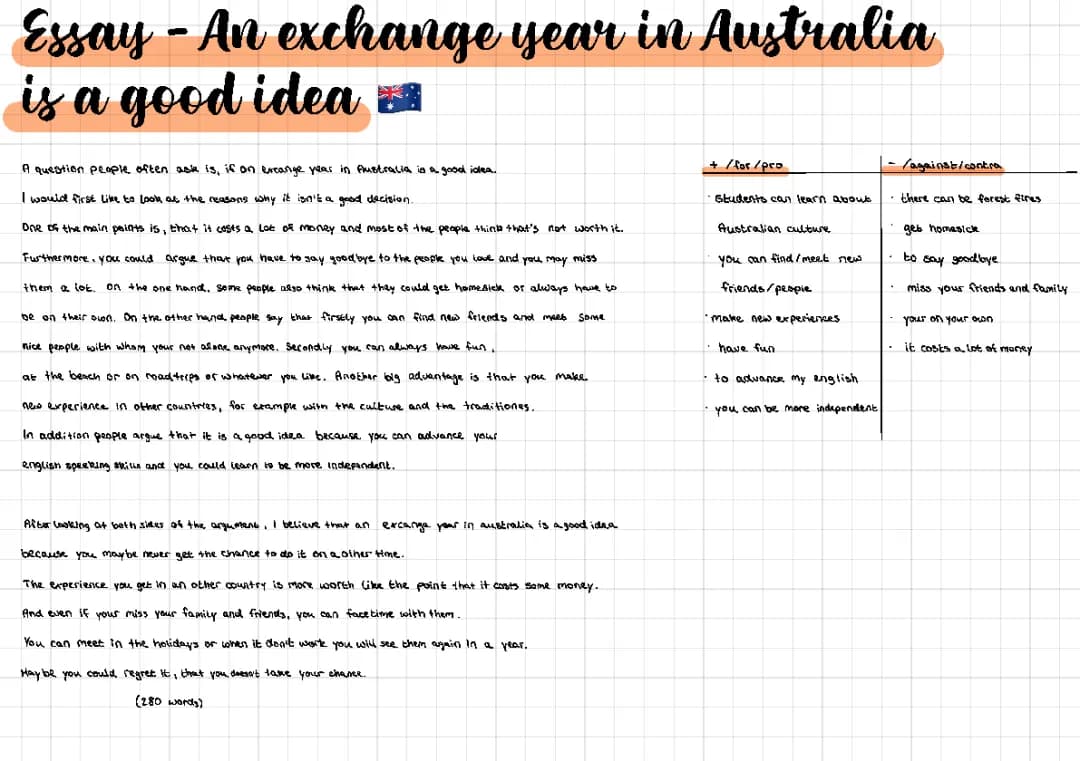 Essay - An exchange year in Australia
is a good idea
A question people often ask is, if an excange year in Australia is a good idea.
I would first like to look at the reasons why it isn't a good decision.
One of the main points is, that it costs a lot of money and most of the people think that's not worth it.
Furthermore, you could argue that you have to say goodbye to the people you love and you may miss
them a lot. On the one hand, some people also think that they could get homesick or always have to
be on their own. On the other hand people say that firstly you can find new friends and meet some
nice people with whom your not alone anymore. Secondly you can always have fun,
at the beach or on roadtrips or whatever you like. Another big advantage is that you make
new experience in other countries, for example with the culture and the traditiones.
In addition people argue that it is a good idea because you can advance your
english speaking skills and you could learn to be more independent.
After looking at both sides of the argument, I believe that an excange year in australia is a good idea
because you maybe never get the chance to do it on a other time.
The experience you get in an other country is more worth like the point that it costs some money.
And even if your miss your family and friends, you can facetime with them.
You can meet in the holidays or when it don't work you will see them again in a year.
Maybe you could regret it, that you doesn't take your chance.
(280 words)
+ /for/pro
· Students can learn about
Australian culture
· you can find/meet new
friends/people
· make new experiences
· have fun
· to advance my english
· you can be more independent
- /against/contra
· there can be forest fires
· get homesick
· to say goodbye
· miss your friends and family
· your on your own
· it costs a lot of money